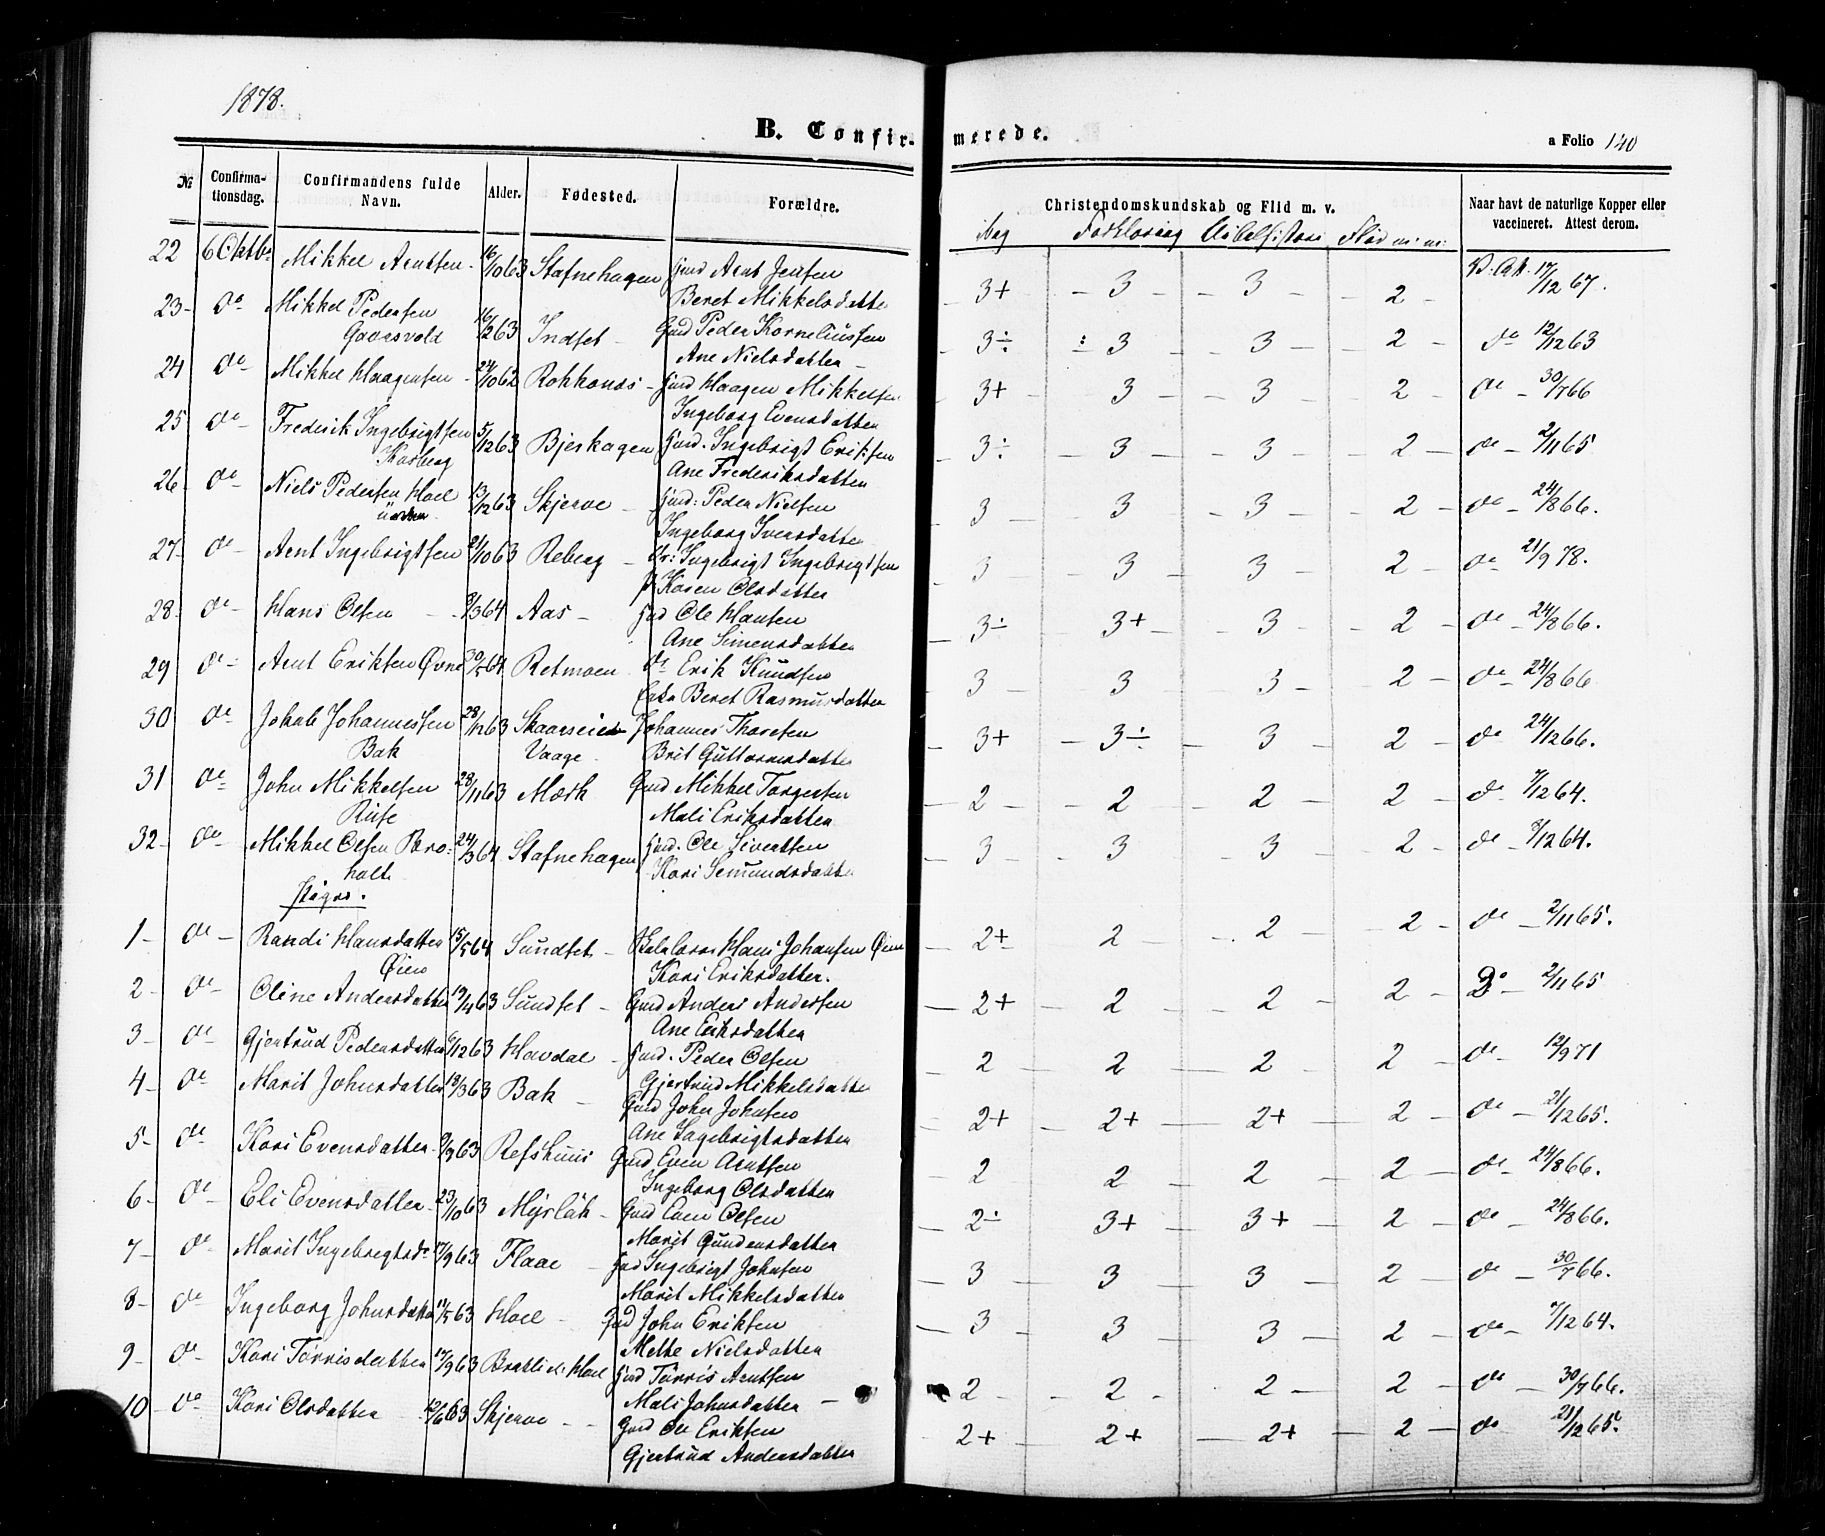 1878.
B. Confir-
merede.
a Folio 140
№
Confirma-
tionsdag.
Confirmandens fulde
Navn.
Alder.
Fødested.
Forældre.
Christendomskundskab og Flid m. v.
Naar havt de naturlige Kopper eller
vaccineret. Attest derom.
Forklaring Bibelhistorie Flid m: m:
22 6 Oktb. Mikkel Arntsen 16/10 63 Stafnehagen Gmd Arnt Jensen 3+ 3 3 2 17/12 67.
Beret Mikkelsdatter
23 do Mikkel Pedersen 16/12 63 Indset Gmd Peder Korneliussen 3÷ : 3 3 2 do 12/12 63
Gaarsvold
Ane Nielsdatter
24 do Mikkel Haagensen 24/10 62 Rokkones Gmd Haagen Mikkelsen 3+ 3 3 2 do 30/7 66
Ingeborg Evensdatter
25 do Frederik Ingebrigtsen 5/12 63 Bjerkagen Gmd. Ingebrigt Eriksen 3÷ 3 3 2 do 2/11 65
Kosberg
Ane Frederiksdatter
26 do Niels Pedersen Hoel 13/12 63 Skjerve Gmd: Peder Nielsen 3 3 3 2 do 24/8 66.
Ingeborg Iversdatter
27 do Arnt Ingebrigtsen 21/10 63 Reberg Ingebrigt Ingebrigtsen 3 3 3 2 do 21/9 78.
Karen Olsdatter
28 do Hans Olsen 9/3 64 Aas Gmd Ole Hansen 3÷ 3+ 3 2 do 24/8 66.
Ane Simensdatter
29 do Arnt Eriksen Øvne 30/5 64 Retmoen do Erik Knudsen 3 3 3 2 do 24/8 66
Beret Rasmusdatter
30 do Jokab Johannessen 28/12 63 Skaarseiet Johannes Thoresen 3+ 3÷ 3 2 do 24/12 66.
Bak Vaage Brit Guttormsdatter
31 do John Mikkelsen 28/11 63 Mærk Gmd Mikkel Torgersen 2 2 2 2 do 7/12 64.
Rise Mali Eriksdatter
32 do Mikkel Olsen Bro- 24/3 64 Stafnehagen Gmd. Ole Sivertsen 3 3 3 2 do 7/12 64.
holt Kari Semundsdatter
Piger.
1 do Randi Hansdatter 15/5 64 Sundset Hans Johansen Øien 2+ 2 2 2 do 2/11 65.
Øien Kari Eriksdatter.
2 do Oline Andersdatter 19/4 63 Sundset Gmd Anders Andersen 2+ 2 2 2 Do 2/11 65
Ane Eriksdatter
3 do Gjertrud Pedersdatter 6/12 63 Havdal Gmd. Peder Olsen 2 2 2 2 do 12/9 71
Gjertrud Mikkelsdatter
4 do Marit Johnsdatter 18/3 63 Bak Gmd John Johnsen 2+ 2+ 2+ 2 do 21/12 65.
Ane Ingebrigtsdatter
5 do Kari Evensdatter 9/9 63 Refshuus Gmd Even Arntsen 2 2 2 2 do 24/8 66.
Ingeborg Olsdatter
6 do Eli Evensdatter 23/10 63 Myrløk Gmd Even Olsen 2÷ 3+ 3+ 2 do 24/8 66.
Marit Gundersdatter
7 do Marit Ingebrigtsdr 17/9 63 Flaae Gmd Ingebrigt Johnsen 3 3 3 2 do 30/7 66.
Marit Mikkelsdatter
8 do Ingeborg Johnsdatter 11/5 63 Hoel Gmd John Eriksen 3 3 3 2 do 7/12 64.
Mette Nielsdatter
9 do Kari Tørrisdatter 17/9 63 Bratli u. Hoel Gmd Tørris Arntsen 2 2 2 2 do 30/7 66.
Mali Johnsdatter
10 do Kari Olsdatter 12/6 63 Skjerve Gmd Ole Eriksen 2+ 2+ 2+ 2 do 21/12 65.
Gjertrud Andersdatter